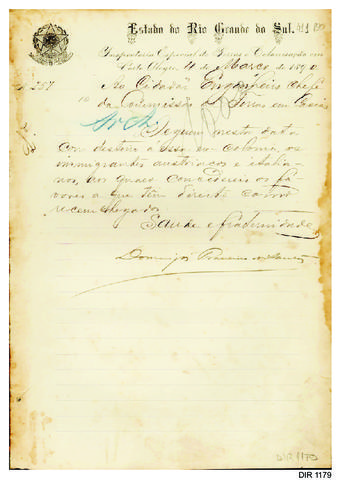 Estado do Rio Grande do Sul.
Inspectoria Especial de Terras e Colonisação em
Porto Alegre, 4 de Março de 189
Ao Cidadão Engenheiro Chefe
da Commissão de Terras em Caxias
Nº 257
Seguem nesta data
com destino a essa ex-colonia, os
immigrantes austriacos e italia-
nos, aos quaes concedereis os fa-
vores a que têm direito como
recemchegados
Saude e fraternidade
Domingos
DIR 1179
DIR 1179